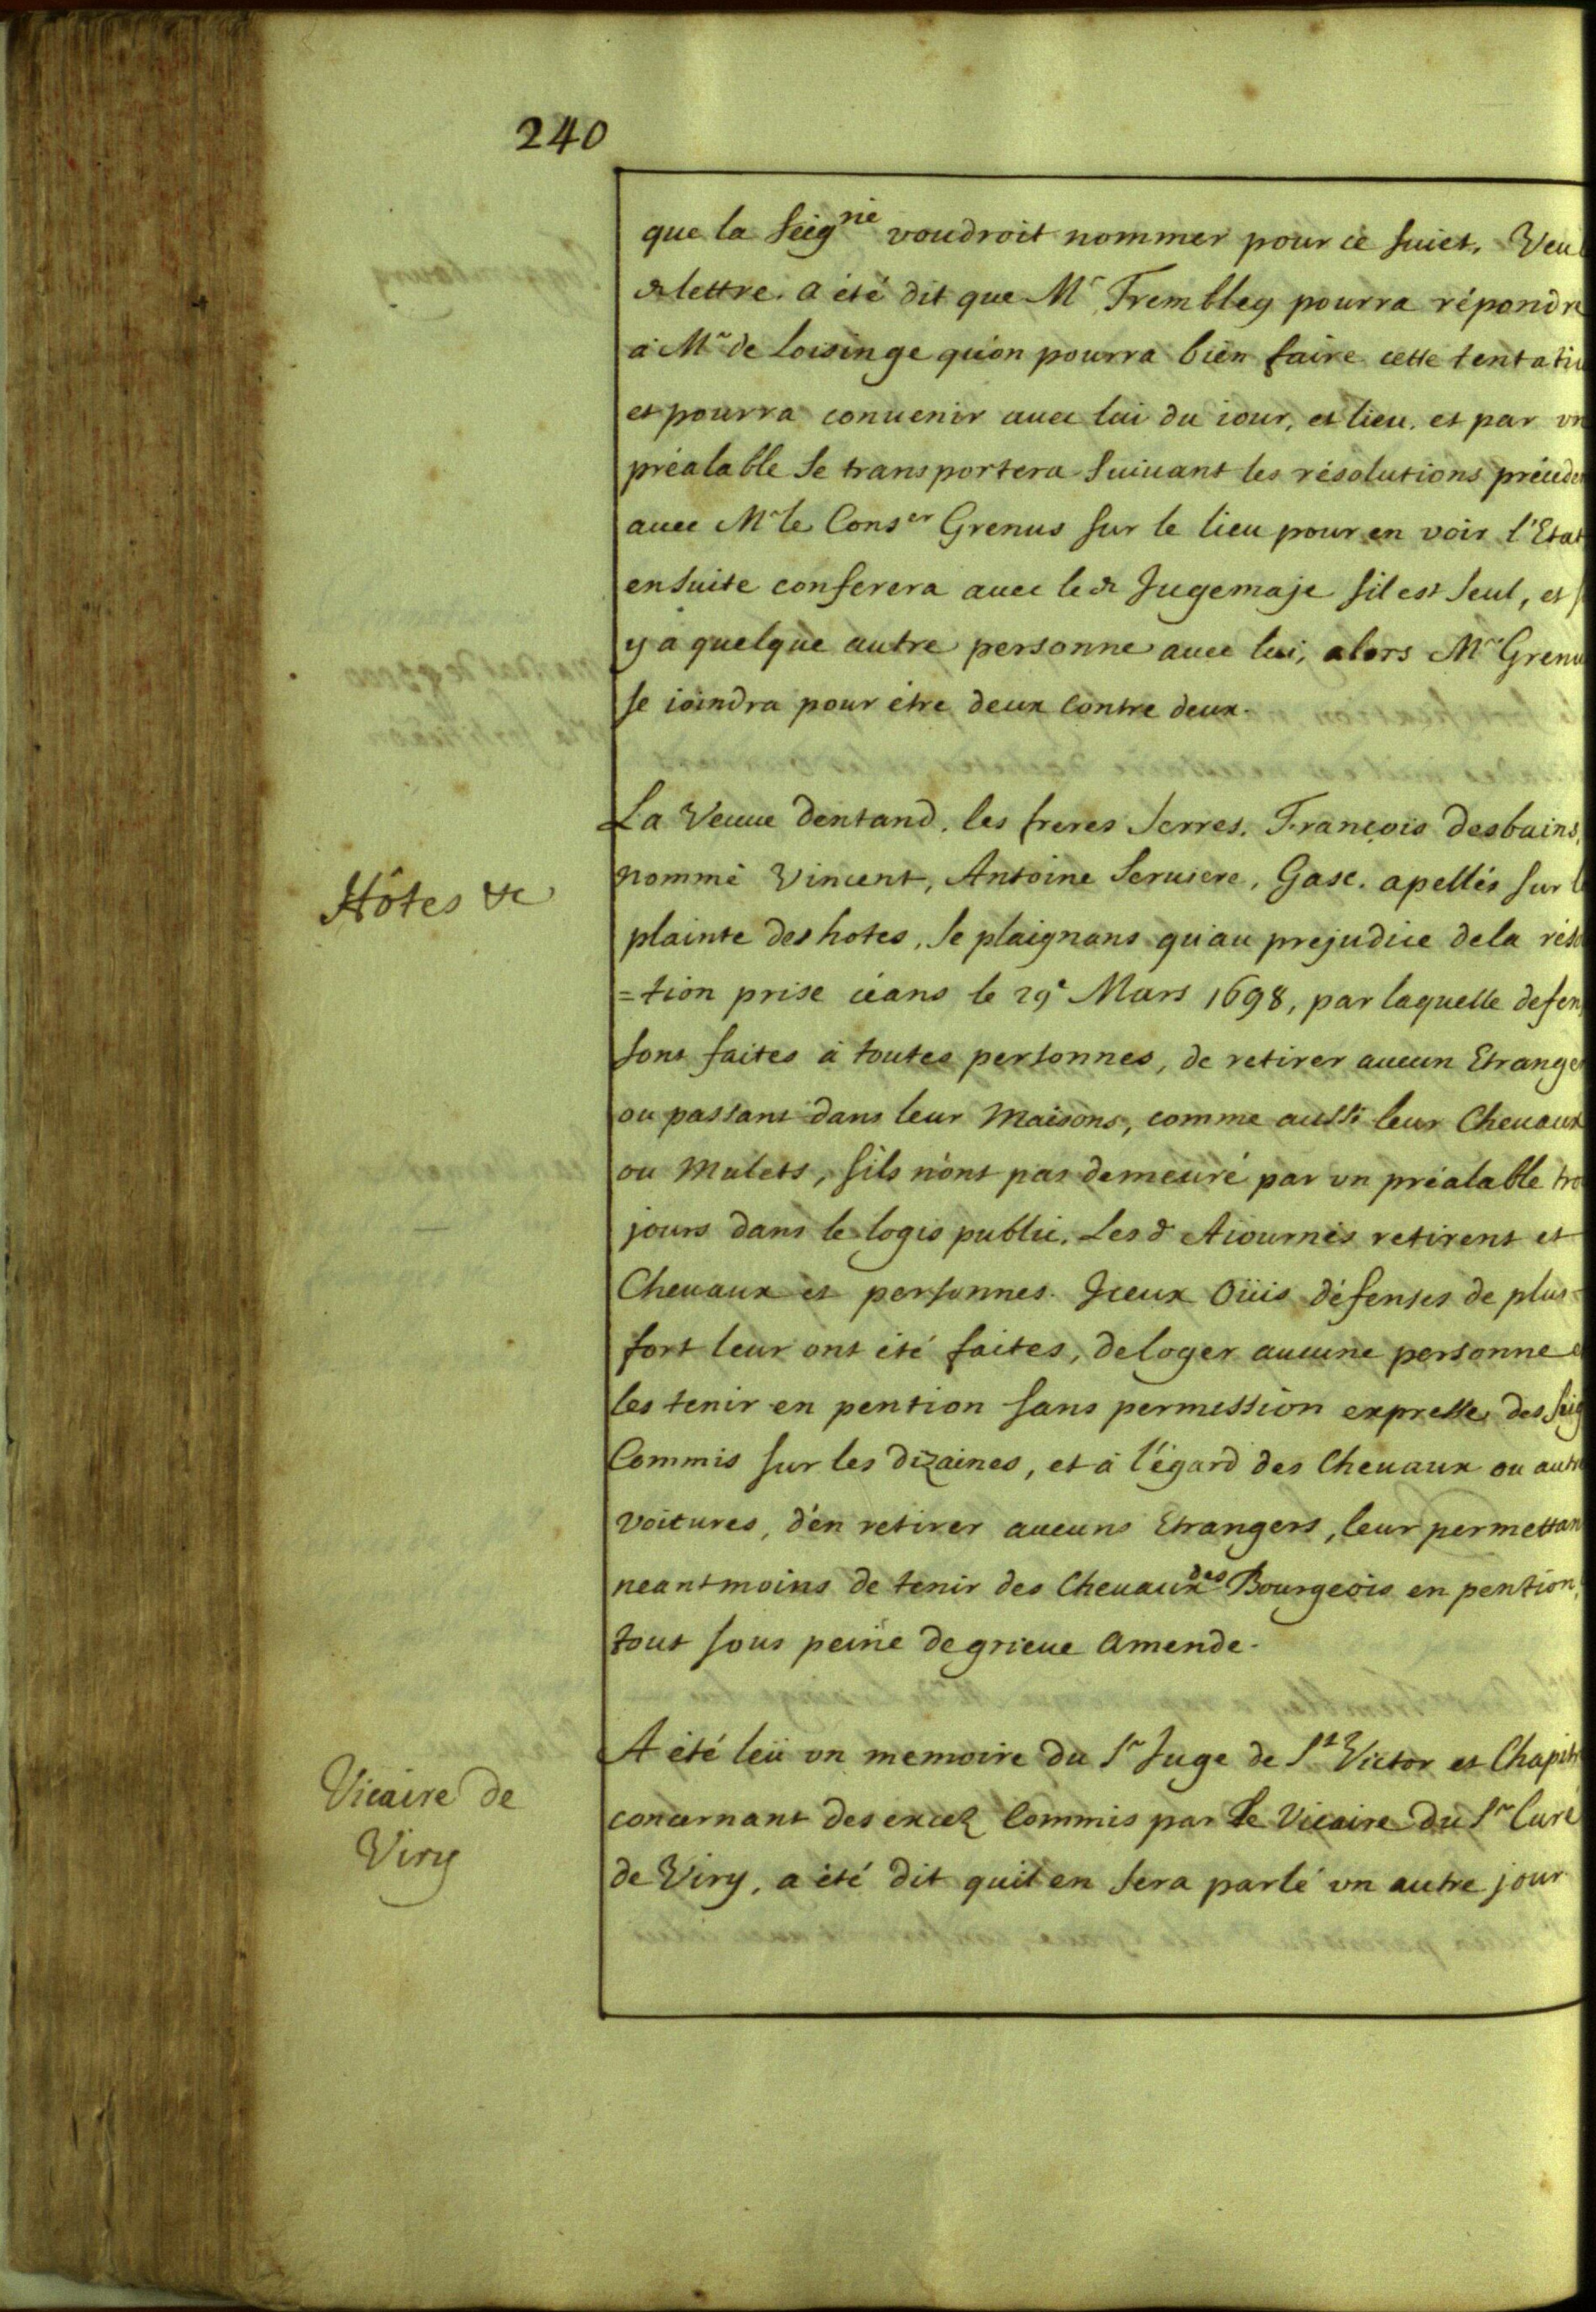 240
que la Seig^nie voudroit nommer pour ce suiet. Veu l
d^e lettre. a été dit que M^r Trembley pourra répondre
à M^r de Loisinge qu'on pourra bien faire cette tentativ
et pourra conuenir auec lui du iour, et lieu. et par vn
préalable se transportera suiuant les résolutions précéden
auec M^r le Cons^er Grenus sur le lieu pour en voir l'Etat
ensuite conferera auec le d^t Jugemaje s'il est seul, et s
y a quelque autre personne auec lui, alors M^r Grenu
se ioindra pour être deux contre deux.
Hôtes &c
La Veuue Dentand. les freres Serres. François Desbains,
nommé Vincent, Antoine Seruiere, Gasc. apellés sur l
plainte des hotes, se plaignans qu'au prejudice de la réso
=tion prise céans le 29^e Mars 1698, par laquelle defen
sont faites à toutes personnes, de retirer aucun Etranger
ou passant dans leur Maisons, comme aussi leur Cheuaux
ou Mulets, s'ils n'ont pas demeuré par vn préalable tro
jours dans le logis public. Les d^t Aiournés retirent et
Cheuaux et personnes. Iceux Oüis défenses de plus
fort leur ont été faites, de loger aucune personne e
les tenir en pention sans permission expresse des Seig
Commis sur les dizaines, et à l'égard des Cheuaux ou autre
voitures, d'en retirer aucuns Etrangers, leur permettan
neantmoins de tenir des Cheuaux des Bourgeois en pention,
tout sous peine de grieue amende.
Vicaire de
Viry
A été leü vn memoire du S^r Juge de S^t Victor et Chapitr
concernant des excez Commis par le Vicaire du S^r Curé
de Viry, a été dit qu'il en sera parlé vn autre jour